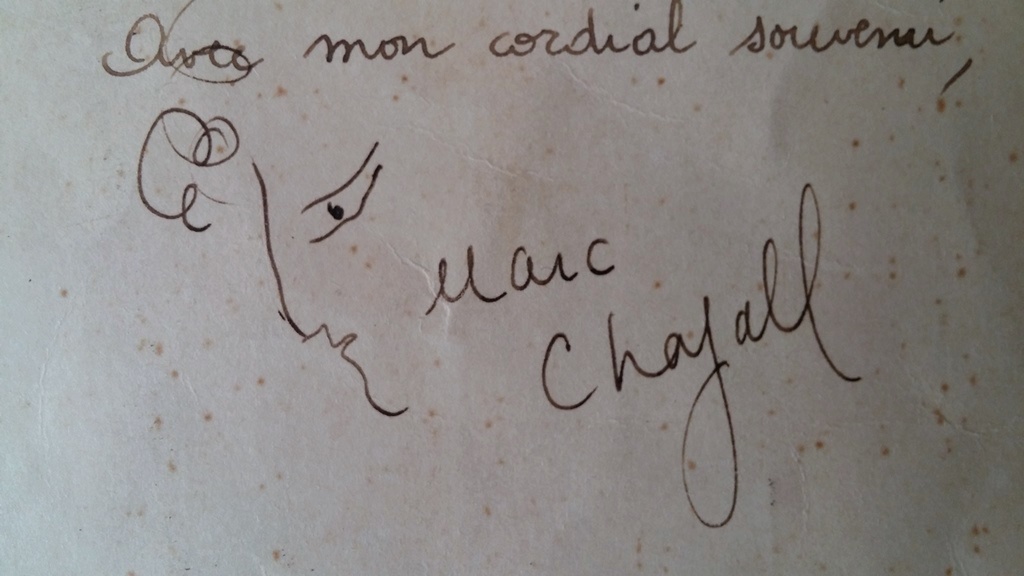 Avec mon cordial souvenir,
Marc
Chagall